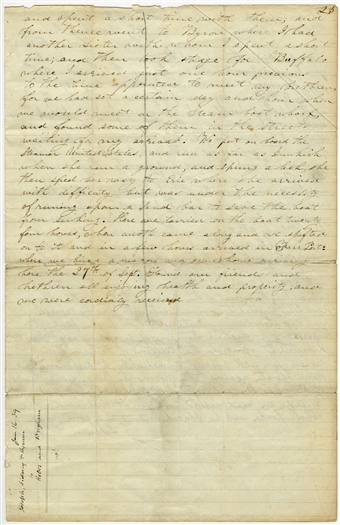 23
and spent a short time with them; and
from thence went to Byron where I had
another Sister with whom I spent a short
time; and then took stage for Buffalo
where I arrived just one hour previous
to the time appointed to meet my Brethren,
for we had set a certain day and hour when
we would meet on the Steam boat wharf,
and found some of them in the streets
waiting for my arrival. We put on board the
Steamer United States, and run as far as Dunkirk
when she run a ground, and sprung a leak, she
then sped her way to Erie where she arrived
with difficulty but was under the necessity
of runing upon a Sand bar to save the boat
from sinking. Here we tarried on the boat twenty
four hours, when another came along and we shifted
on to it and in a few hours arrived in
when we hired a wagon and arrived
here the 27th of Sept. Found our friends and
brethren all enjoying health and prosperity and
we were cordially received
Joseph, Sidney & Hyrum
Jan. 16. 39
to
Heber and Brigham